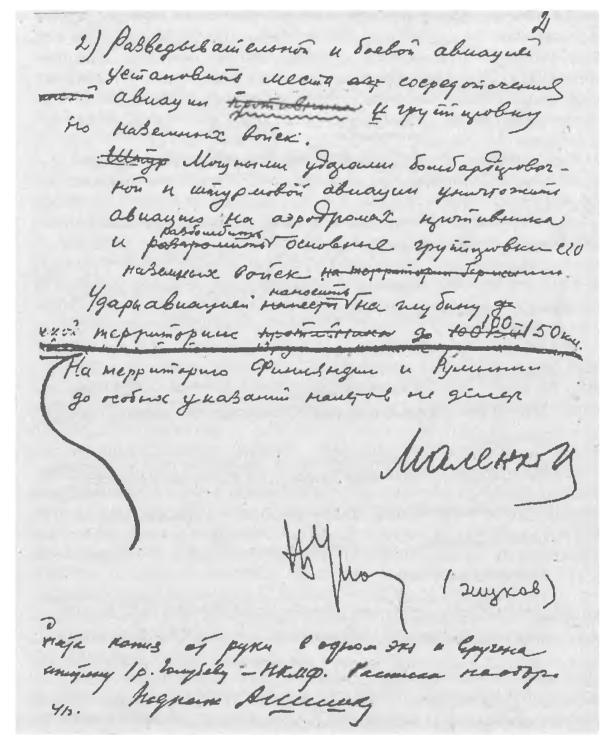 2
2) Разведывательной и боевой авиацией
установить места сосредоточения
авиации противника и группировку
его наземных войск.
Штур Мощными ударами бомбардировоч-
ной и штурмовой авиации уничтожить
авиацию на аэродромах противника
разбомбить
и разгромить основные группировки его
наземных войск на территории Германии.
наносить
Удары авиацией нанести на глубину
территории противника до 100-150 км.
На территорию Финляндии и Румынии
до особых указаний налетов не делать
Маленков
(Жуков)
от руки в одном экз и вручена
Голубеву — НКМФ. Расписка на обор